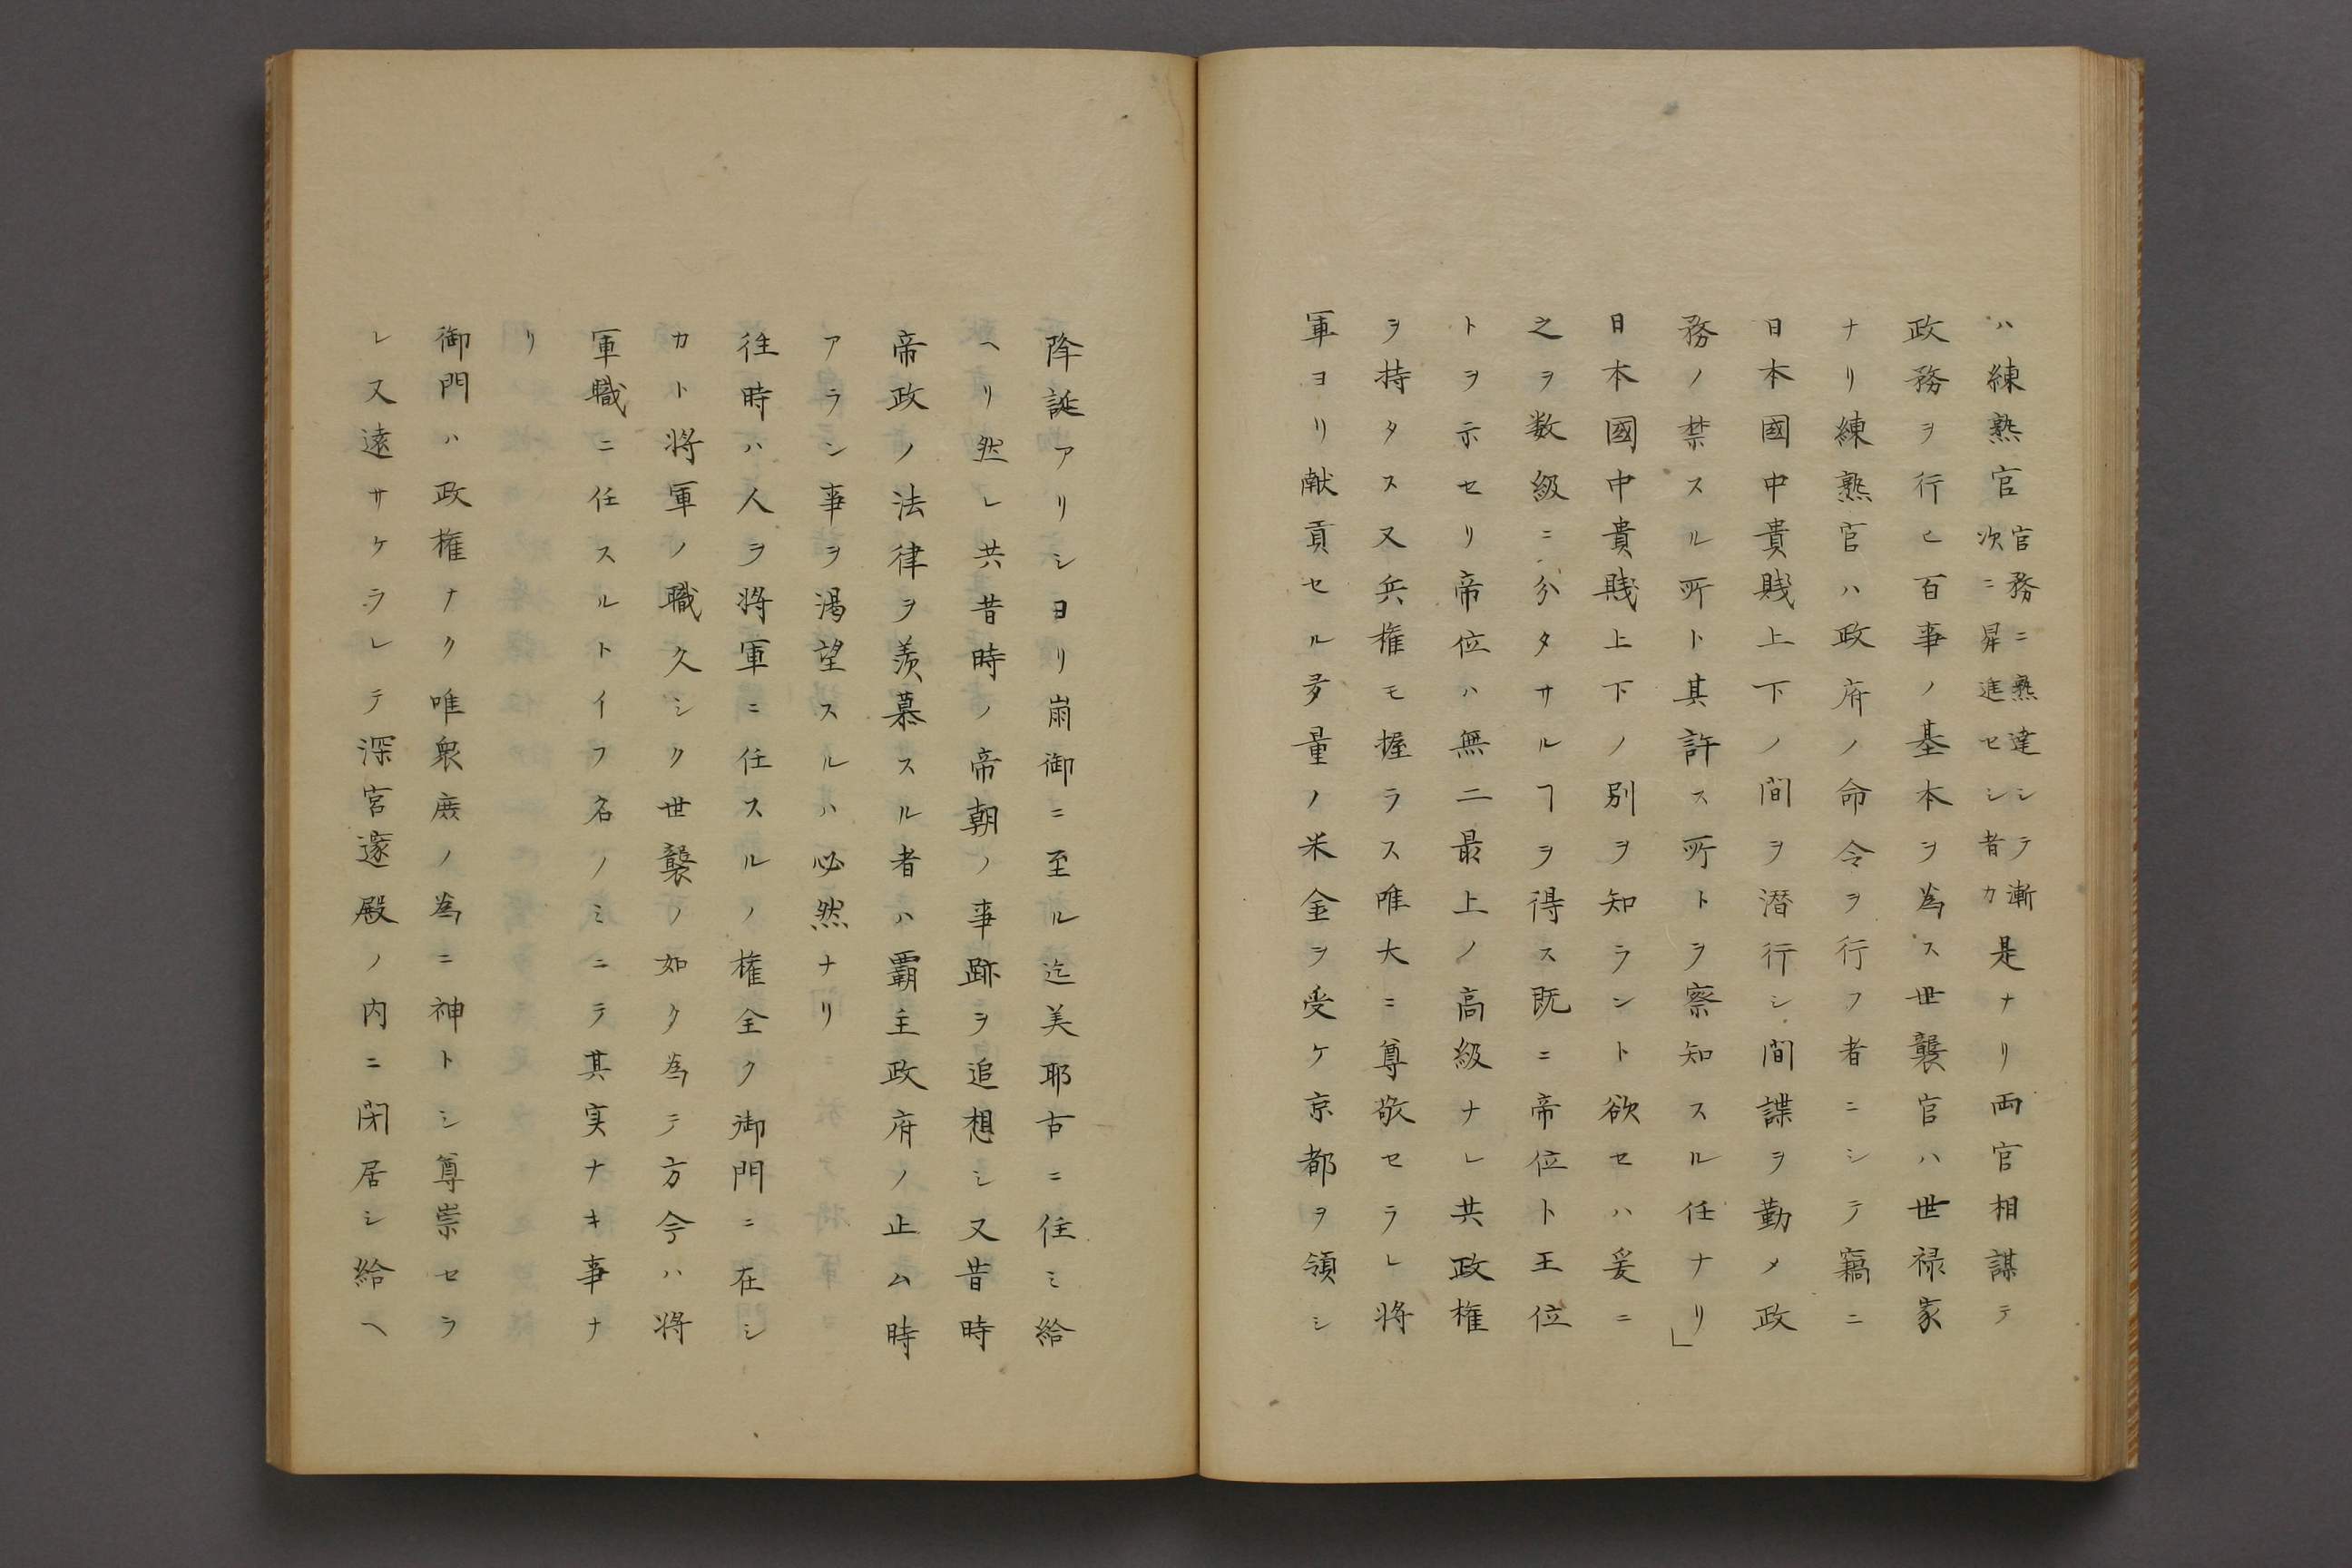 ハ練熟官官務ニ熟達シテ漸次ニ昇進セシ者カ是ナリ両官相謀テ
政務ヲ行ヒ百事ノ基本ヲ為ス世襲官ハ世禄家
ナリ練熟官ハ政府ノ命令ヲ行フ者ニシテ竊ニ
日本國中貴賤上下ノ間ヲ潜行シ間諜ヲ勤メ政
務ノ禁スル所ト其許ス所トヲ察知スル任ナリ」
日本國中貴賤上下ノ別ヲ知ラント欲セハ爰ニ
之ヲ数級ニ分タサルヿヲ得ス既ニ帝位ト王位
トヲ示セリ帝位ハ無二最上ノ高級ナレ共政権
ヲ持タス又兵権モ握ラス唯大ニ尊敬セラレ将
軍ヨリ献貢セル夛量ノ米金ヲ受ケ京都ヲ領シ
降誕アリシヨリ崩御ニ至ル迄美耶古ニ住ミ給
ヘリ然レ共昔時ノ帝朝ノ事跡ヲ追想シ又昔時
帝政ノ法律ヲ羨慕スル者ハ覇主政府ノ止ム時
アラン事ヲ渇望スルハ必然ナリ
往時ハ人ヲ将軍ニ任スルノ権全ク御門ニ在シ
カト将軍ノ職久シク世襲ノ如ク為テ方今ハ将
軍職ニ任スルトイフ名ノミニテ其実ナキ事ナ
リ
御門ハ政権ナク唯衆庶ノ為ニ神トシ尊崇セラ
レ又遠サケラレテ深宮邃殿ノ内ニ閉居シ給ヘ